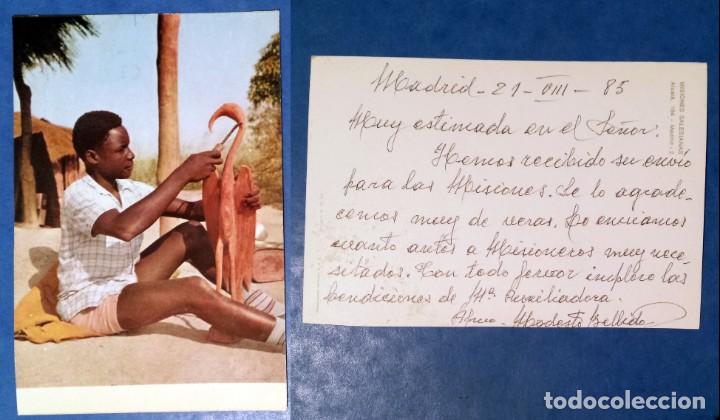 Madrid - 21 - VIII - 85
Muy estimada en el Señor:
Hemos recibido su envío
para las Misiones. Se lo agrade-
cemos muy de veras. Lo enviamos
cuanto antes a Misioneros muy nece-
sitados. Con todo fervor imploro las
bendiciones de Mª Auxiliadora.
Afmo. Modesto Bellido
MISIONES SALESIANAS
Alcalá, 164 - Madrid - 2
todocoleccion
todocoleccion.net